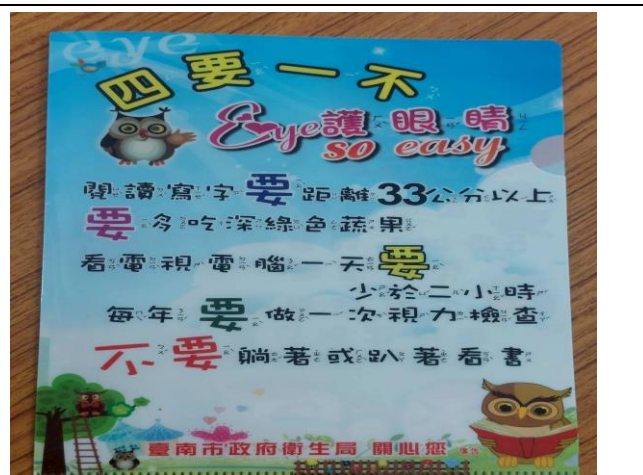 eye
四要一不
Eye護眼睛
so easy
閱讀寫字要距離33公分以上
要多吃深綠色蔬果
看電視電腦一天要
少於二小時
每年要做一次視力檢查
不要躺著或趴著看書
臺南市政府衛生局 關心您 廣告